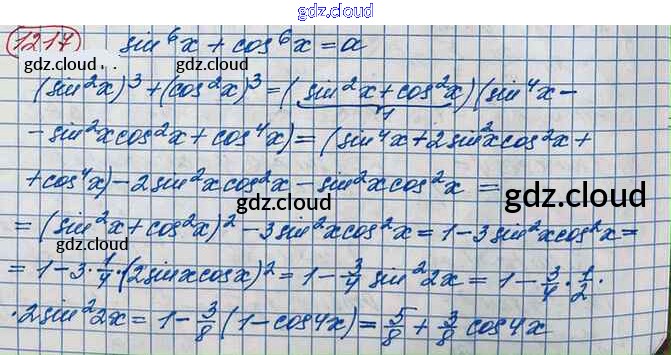 gdz.cloud
1217 sin⁶x + cos⁶x = a
gdz.cloud gdz.cloud
(sin²x)³ + (cos²x)³ = (sin²x + cos²x)(sin⁴x −
1
− sin²x cos²x + cos⁴x) = (sin⁴x + 2sin²x cos²x +
+ cos⁴x) − 2sin²x cos²x − sin²x cos²x =
gdz.cloud gdz.cloud
= (sin²x + cos²x)² − 3sin²x cos²x = 1 − 3sin²x cos²x =
= 1 − 3 · 1/4 · (2sinx cosx)² = 1 − 3/4 sin²2x = 1 − 3/4 · 1/2 ·
· 2sin²2x = 1 − 3/8 (1 − cos4x) = 5/8 + 3/8 cos4x
gdz.cloud gdz.cloud